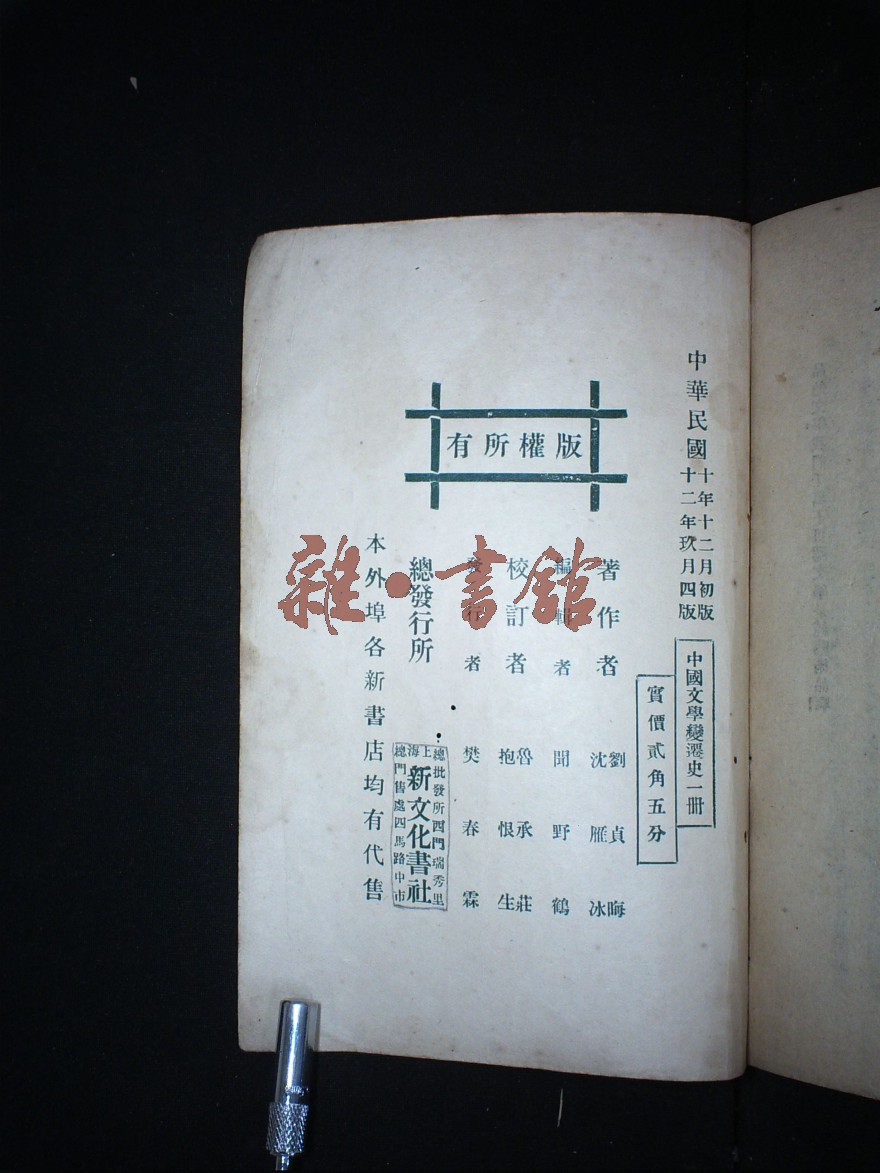 中華民國十年十二月初版
十二年玖月四版
中國文學變遷史一冊
實價貳角五分
版權所有
著作者 劉貞晦 沈雁冰
編輯者 聞野鶴
校訂者 魯承莊 抱恨生
發行者 樊春霖
總發行所
總批發所西門瑞秀里
上海新文化書社
總門售處四馬路中市
本外埠各新書店均有代售
雜·書館